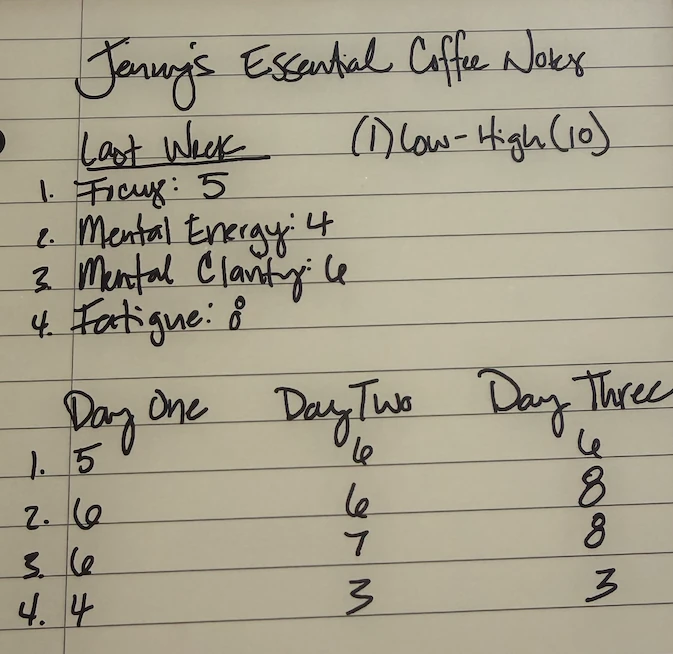 Jenny's Essential Coffee Notes
Last Week (1) Low - High (10)
1. Focus: 5
2. Mental Energy: 4
3. Mental Clarity: 6
4. Fatigue: 8
Day One Day Two Day Three
1. 5 6 6
2. 6 6 8
3. 6 7 8
4. 4 3 3